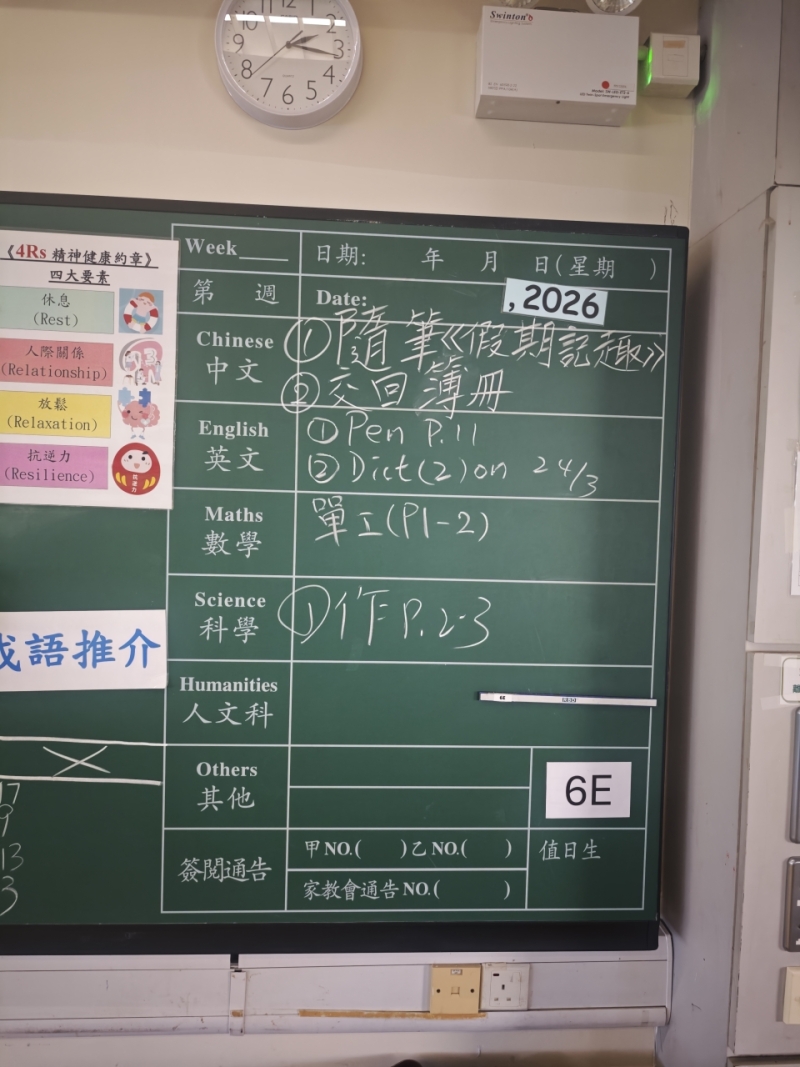 12
2
3
4
5
6
7
8
9
10
Swinton
《4Rs 精神健康約章》
四大要素
休息
(Rest)
人際關係
(Relationship)
放鬆
(Relaxation)
抗逆力
(Resilience)
語推介
17
9
13
3
Week____
第 週
日期: 年 月 日(星期 )
Date: , 2026
Chinese
中文
①隨筆《假期記趣》
②交回簿冊
English
英文
①Pen P.11
②Dict(2)on 24/3
Maths
數學
單工(P1-2)
Science
科學
①作P.2-3
Humanities
人文科
Others
其他
6E
簽閱通告
甲NO.( )乙NO.( )
家教會通告NO.( )
值日生